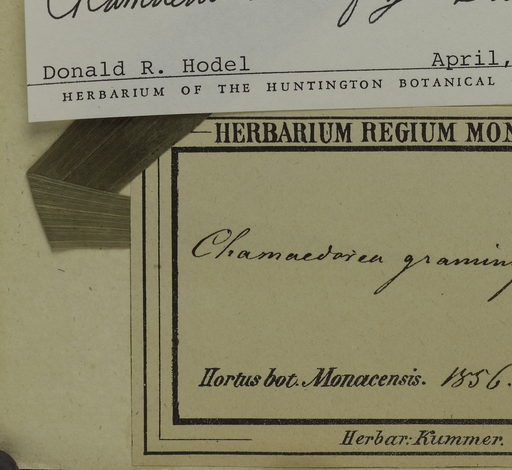 Donald R. Hodel April,
HERBARIUM OF THE HUNTINGTON BOTANICAL
HERBARIUM REGIUM MON
Chamaedorea gramin
Hortus bot. Monacensis. 1856.
Herbar: Kummer.